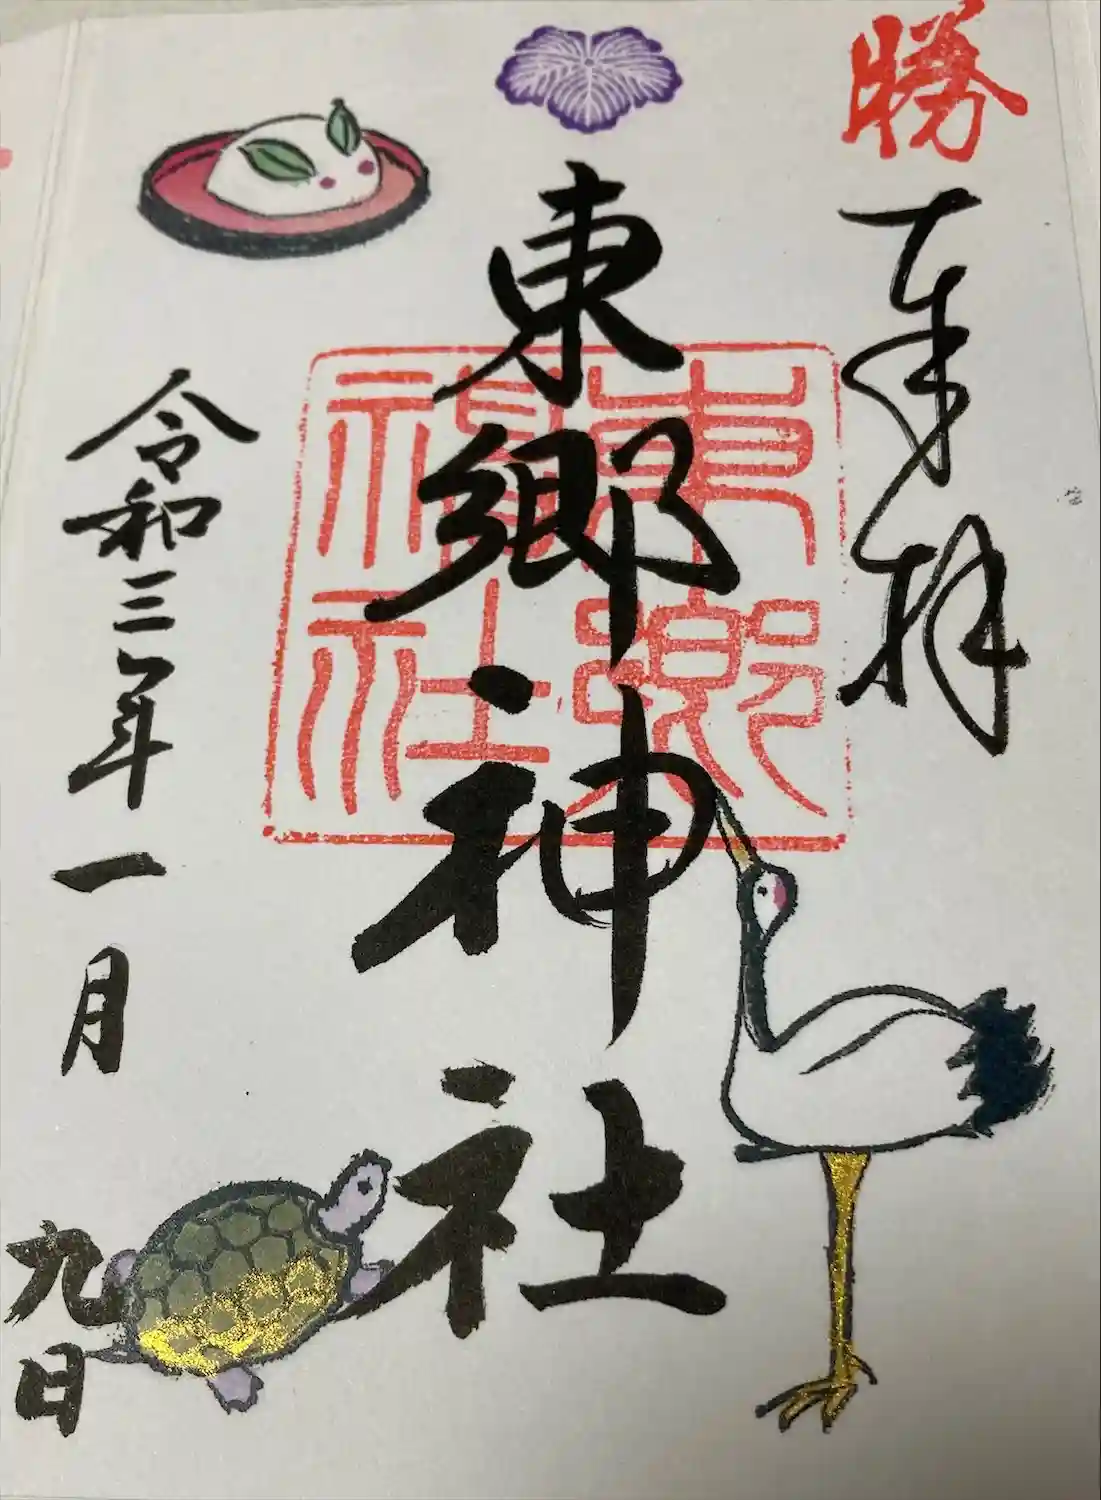 勝
奉拝
東郷神社
東郷神社
令和三年一月九日